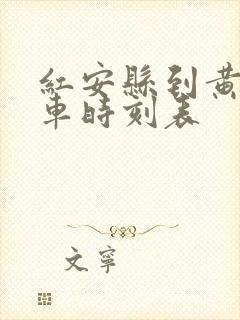 紅安縣到黃
車時刻表
文寧